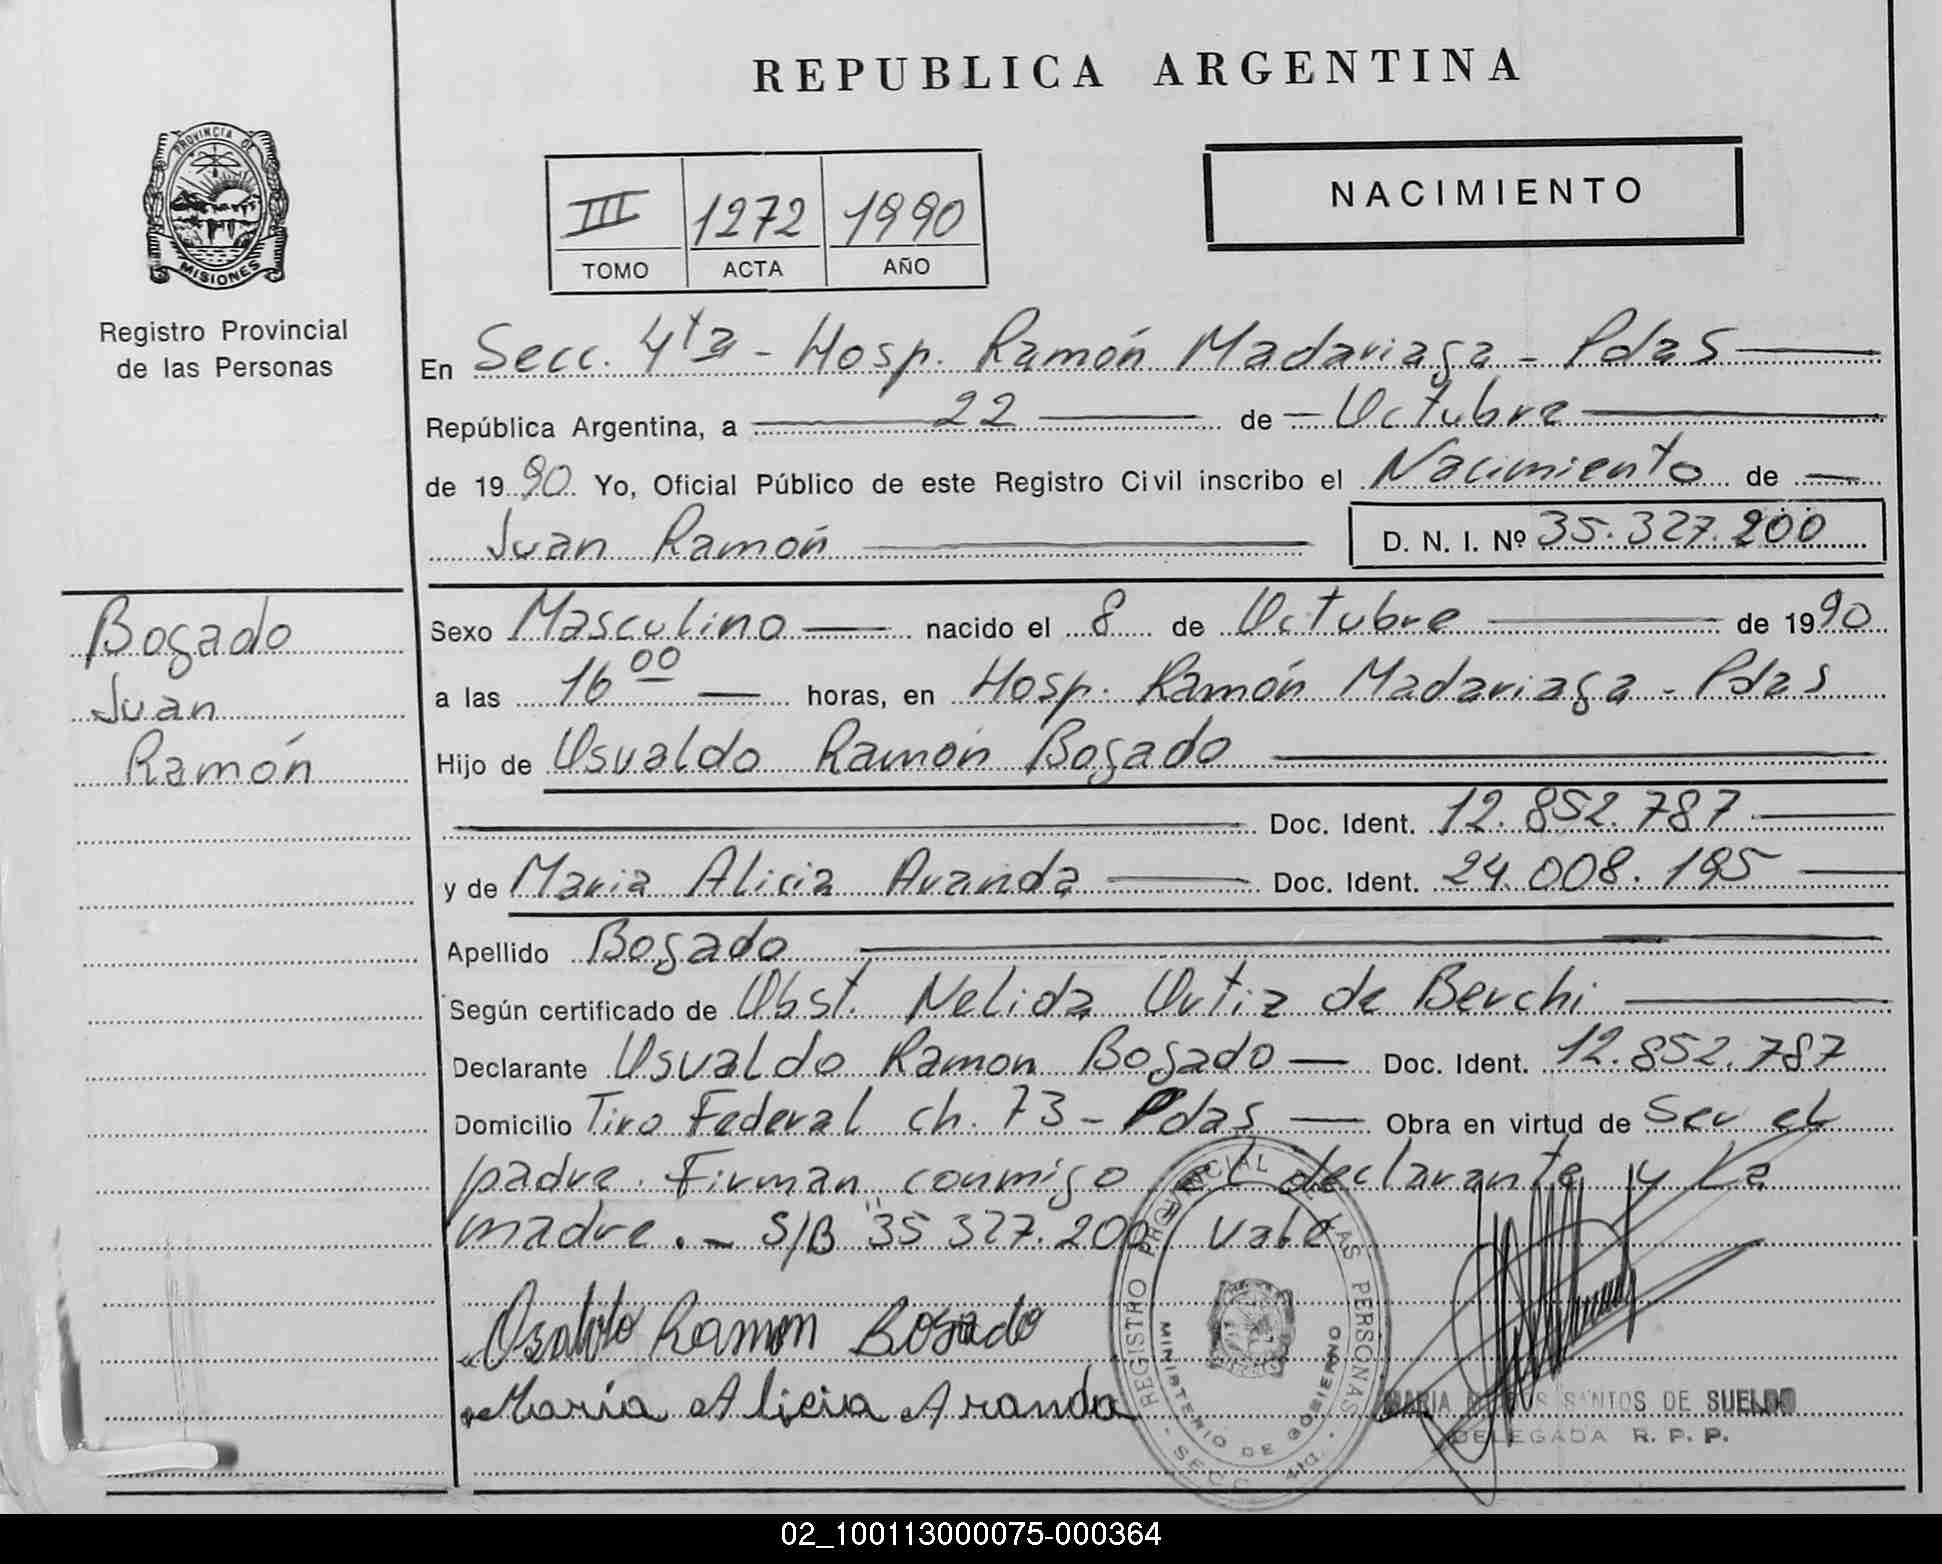 REPUBLICA ARGENTINA
PROVINCIA DE
MISIONES
Registro Provincial
de las Personas
III 1272 1990
TOMO ACTA AÑO
NACIMIENTO
En Secc. 4ta - Hosp. Ramón Madariaga - Pdas
República Argentina, a 22 de Octubre
de 1990 Yo, Oficial Público de este Registro Civil inscribo el Nacimiento de
Juan Ramón D. N. I. Nº 35.327.200
Bogado
Juan
Ramón
Sexo Masculino nacido el 8 de Octubre de 1990
a las 16 00 horas, en Hosp. Ramón Madariaga - Pdas
Hijo de Osvaldo Ramón Bogado
Doc. Ident. 12.852.787
y de Maria Alicia Aranda Doc. Ident. 24.008.195
Apellido Bogado
Según certificado de Obst. Nelida Ortiz de Berchi
Declarante Osvaldo Ramon Bogado Doc. Ident. 12.852.787
Domicilio Tiro Federal ch. 73 - Pdas Obra en virtud de Ser el
padre. Firman conmigo el declarante y la
madre. - S/B "35 327.200 Vale
Osvaldo Ramon Bogado
Maria Alicia Aranda
REGISTRO PROVINCIAL DE LAS PERSONAS
MINISTERIO DE GOBIERNO
- SECC. 4ta. -
MARIA SANTOS DE SUELDO
DELEGADA R. P. P.
02_100113000075-000364